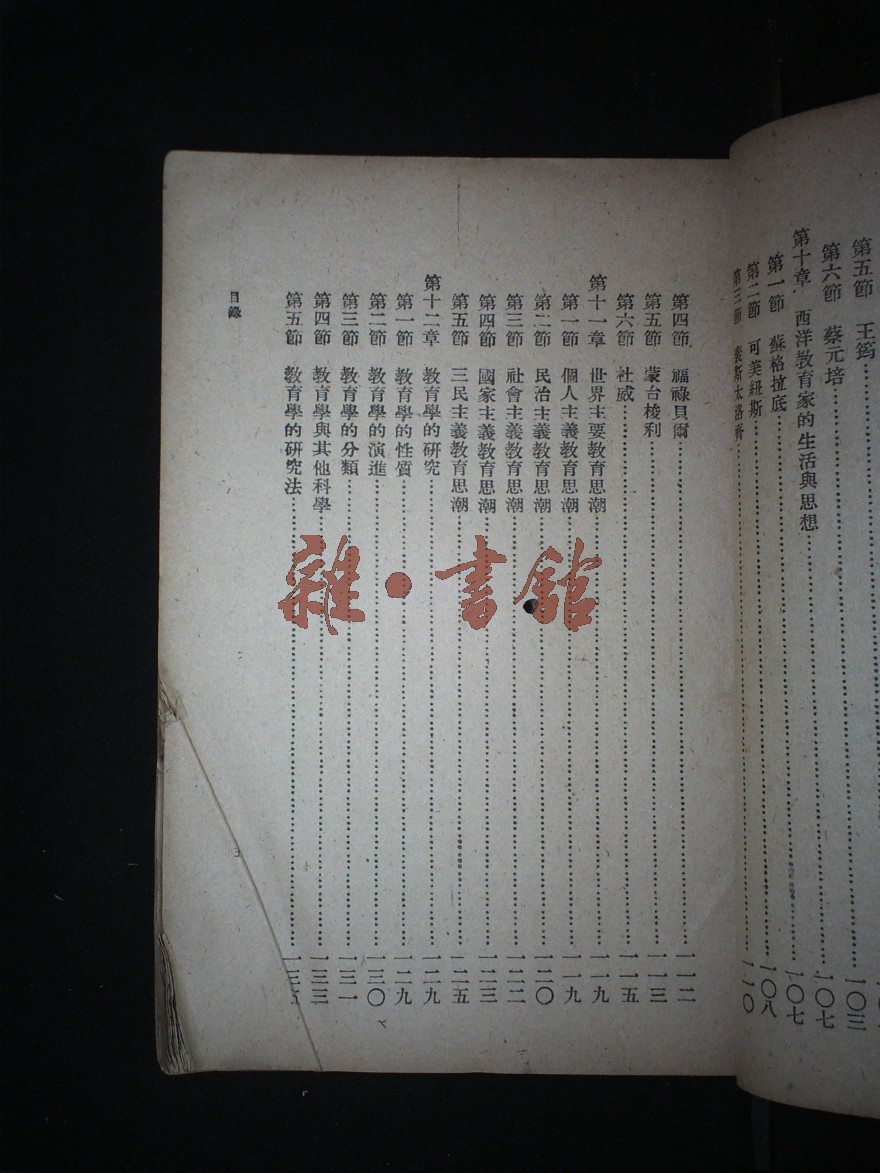 第五節 王筠……一〇三
第六節 蔡元培……一〇七
第十章 西洋教育家的生活與思想……一〇七
第一節 蘇格拉底……一〇八
第二節 可美紐斯
第三節 裴斯太洛齊……一一〇
第四節 福祿貝爾……一一二
第五節 蒙台梭利……一一三
第六節 杜威……一一五
第十一章 世界主要教育思潮……一一九
第一節 個人主義教育思潮……一一九
第二節 民治主義教育思潮……一二〇
第三節 社會主義教育思潮……一二二
第四節 國家主義教育思潮……一二三
第五節 三民主義教育思潮……一二五
第十二章 教育學的研究……一二九
第一節 教育學的性質……一二九
第二節 教育學的演進……一三〇
第三節 教育學的分類……一三一
第四節 教育學與其他科學……一三三
第五節 教育學的研究法……一三五
目錄
五
雜·書館